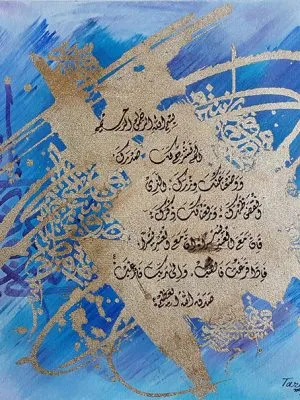 بسم الله الرحمن الرحيم
ألم نشرح لك صدرك
ووضعنا عنك وزرك الذي
أنقض ظهرك ورفعنا لك ذكرك
فإن مع العسر يسرا إن مع العسر يسرا
فإذا فرغت فانصب وإلى ربك فارغب
صدق الله العظيم